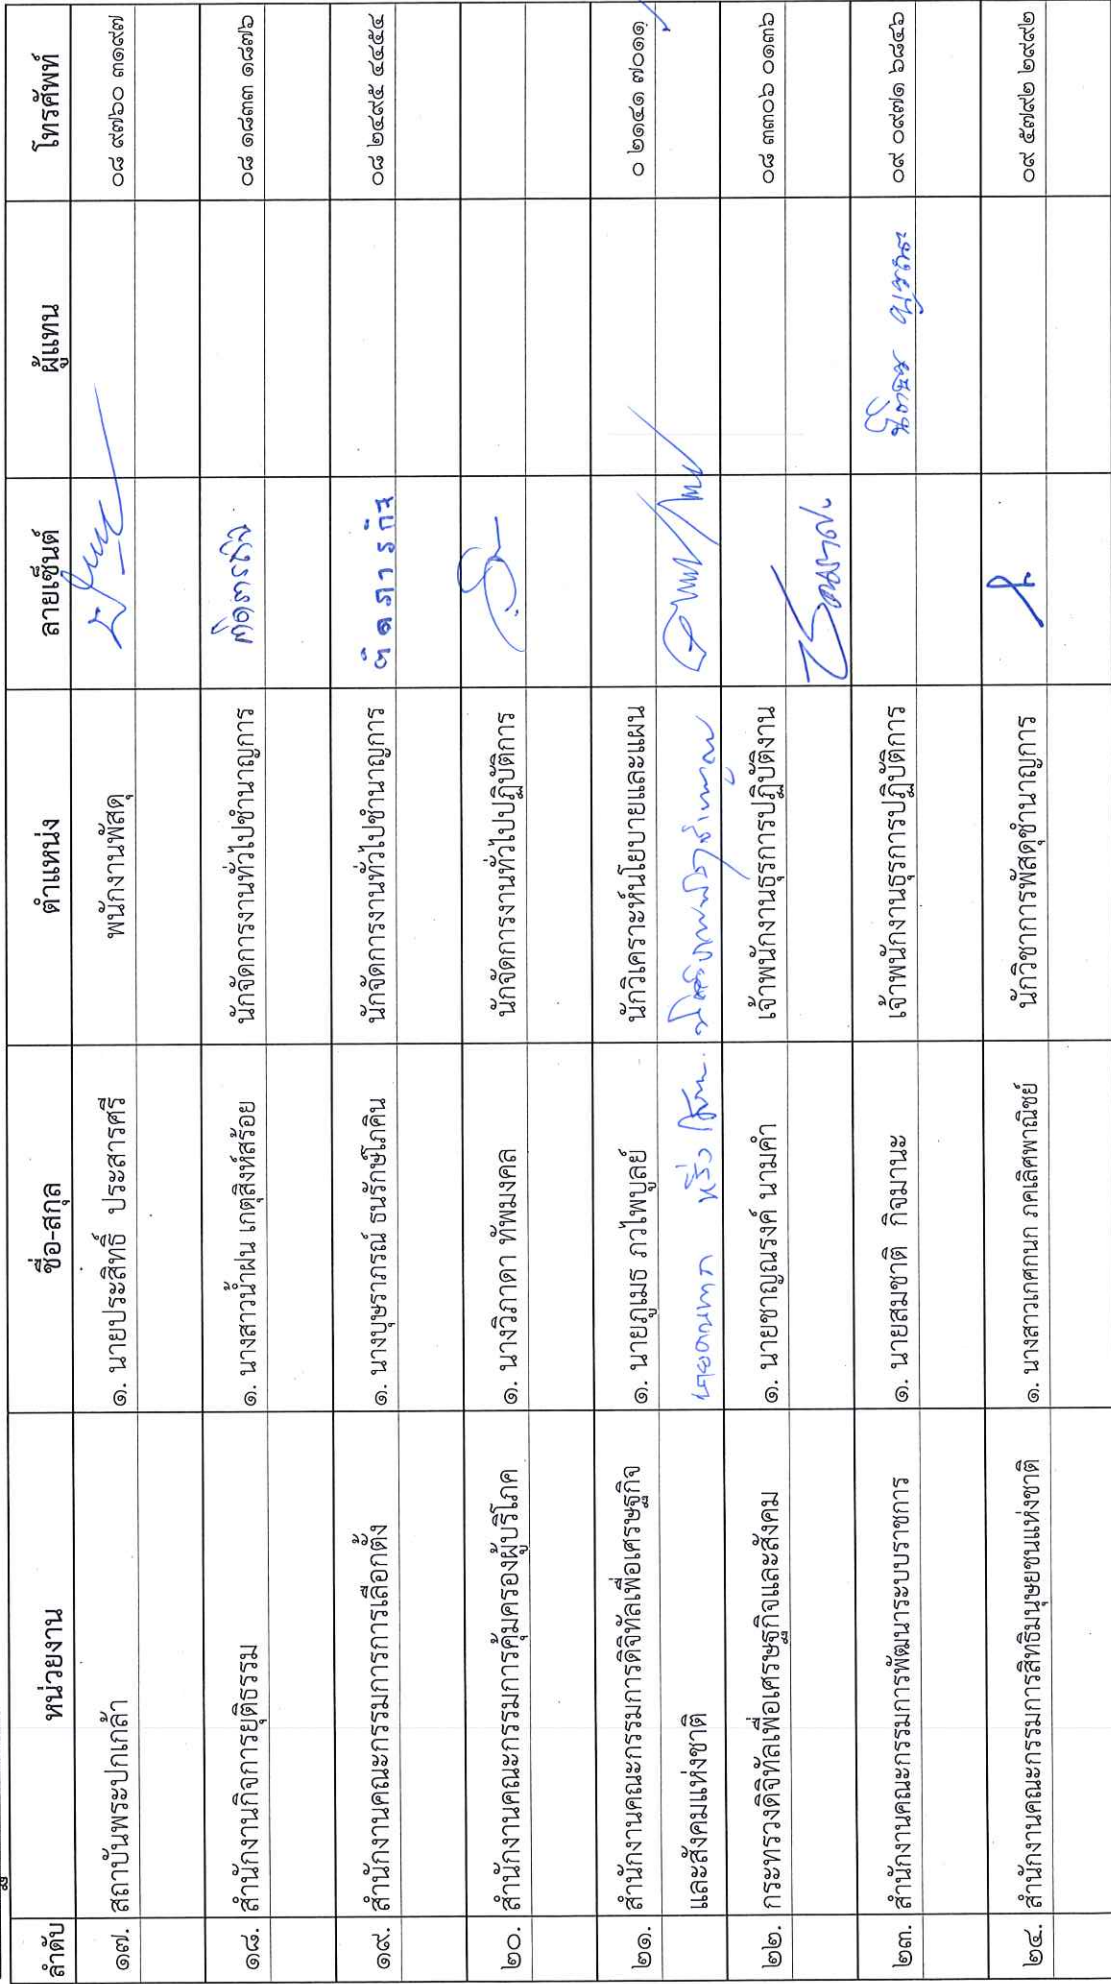 ลำดับ หน่วยงาน ชื่อ-สกุล ตำแหน่ง ลายเซ็นต์ ผู้แทน โทรศัพท์
๑๗. สถาบันพระปกเกล้า ๑. นายประสิทธิ์ ประสารศรี พนักงานพัสดุ ๐๘ ๙๗๖๐ ๓๑๙๗
๑๘. สำนักงานกิจการยุติธรรม ๑. นางสาวน้ำฝน เกตุสิงห์สร้อย นักจัดการงานทั่วไปชำนาญการ ติดภารกิจ ๐๘ ๑๘๓๓ ๑๘๗๖
๑๙. สำนักงานคณะกรรมการการเลือกตั้ง ๑. นางบุษราภรณ์ ธนรักษ์โภคิน นักจัดการงานทั่วไปชำนาญการ ติดภารกิจ ๐๘ ๒๔๙๕ ๔๔๕๔
๒๐. สำนักงานคณะกรรมการคุ้มครองผู้บริโภค ๑. นางวิภาดา ทัพมงคล นักจัดการงานทั่วไปปฏิบัติการ
๒๑. สำนักงานคณะกรรมการดิจิทัลเพื่อเศรษฐกิจ ๑. นายภูเมธ ภวไพบูลย์ นักวิเคราะห์นโยบายและแผน ๐ ๒๑๔๑ ๗๐๑๑
และสังคมแห่งชาติ
๒๒. กระทรวงดิจิทัลเพื่อเศรษฐกิจและสังคม ๑. นายชาญณรงค์ นามคำ เจ้าพนักงานธุรการปฏิบัติงาน ๐๘ ๓๓๐๖ ๐๑๓๖
๒๓. สำนักงานคณะกรรมการพัฒนาระบบราชการ ๑. นายสมชาติ กิจมานะ เจ้าพนักงานธุรการปฏิบัติการ ๐๙ ๐๙๗๑ ๖๘๔๖
๒๔. สำนักงานคณะกรรมการสิทธิมนุษยชนแห่งชาติ ๑. นางสาวเกศกนก ภคเลิศพาณิชย์ นักวิชาการพัสดุชำนาญการ ๐๙ ๕๗๙๒ ๒๙๙๒